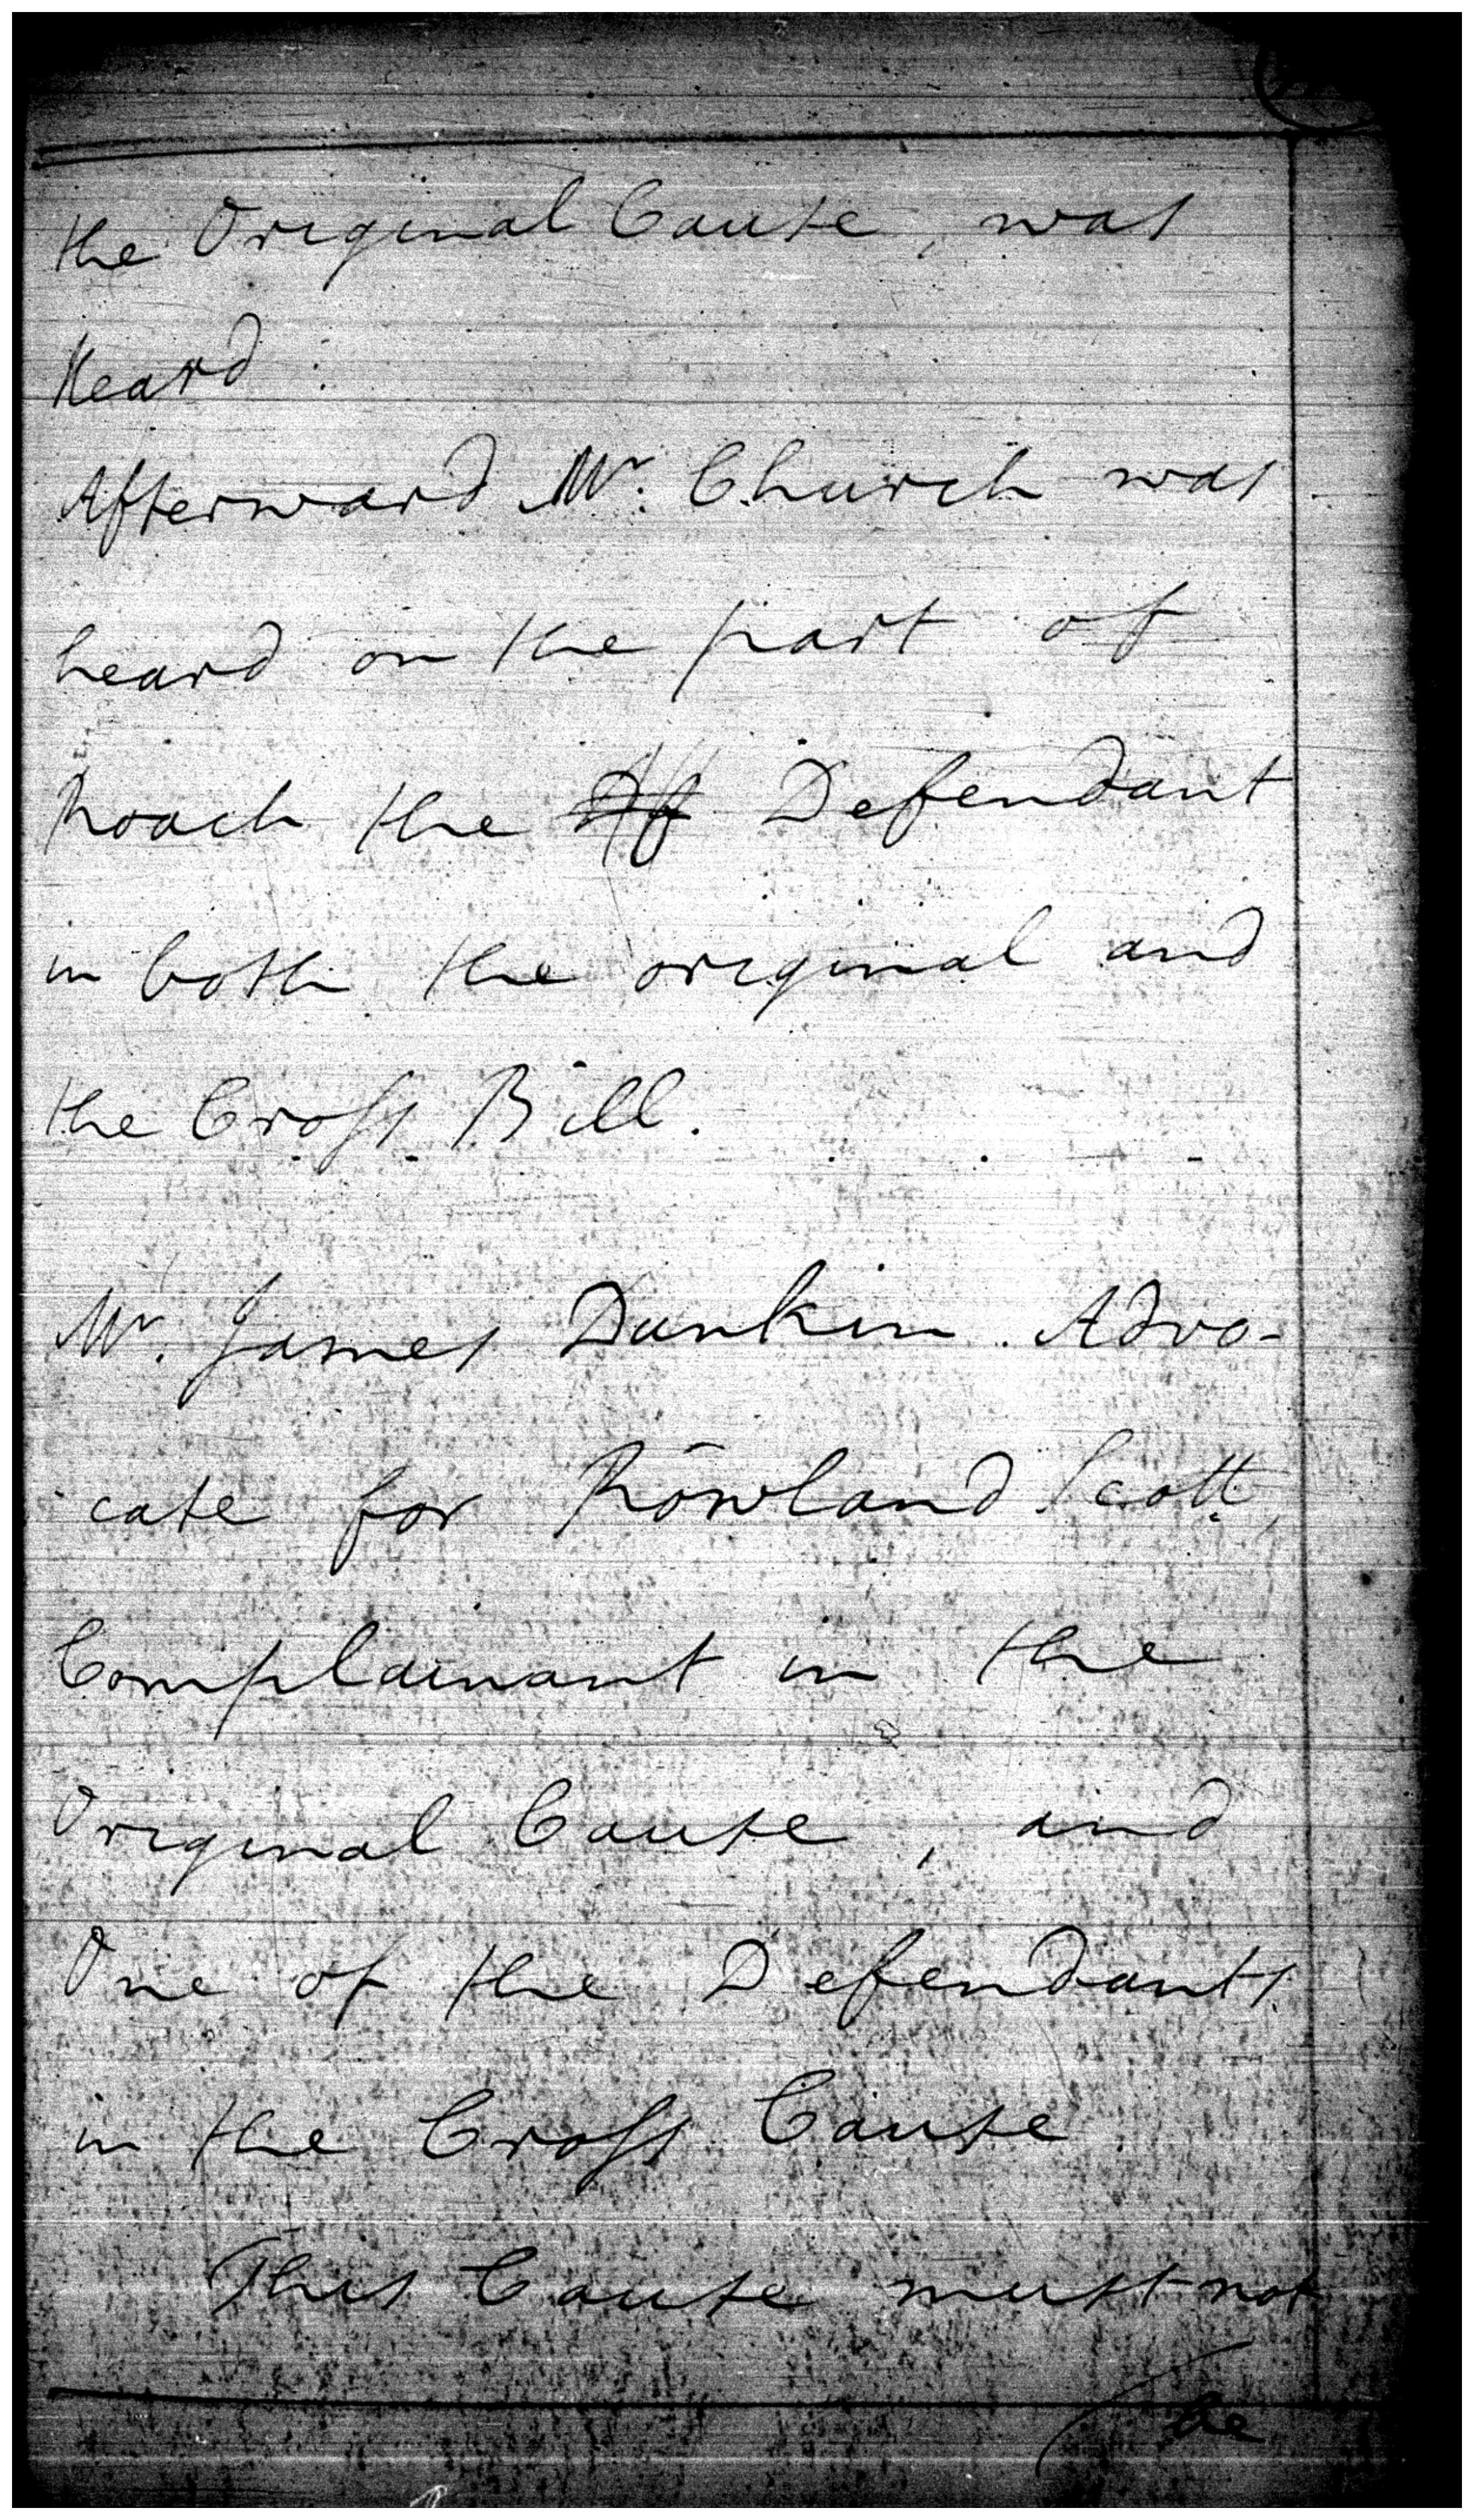 the Original Cause, was
heard :
Afterward Mr. Church was
heard on the part of
Roach the Defendant
in both the original and
the Cross Bill.
Mr. James Dunkin Advo-
cate for Rowland Scott,
Complainant in the
Original Cause, and
One of the Defendants
in the Cross Cause
This Cause must not
be